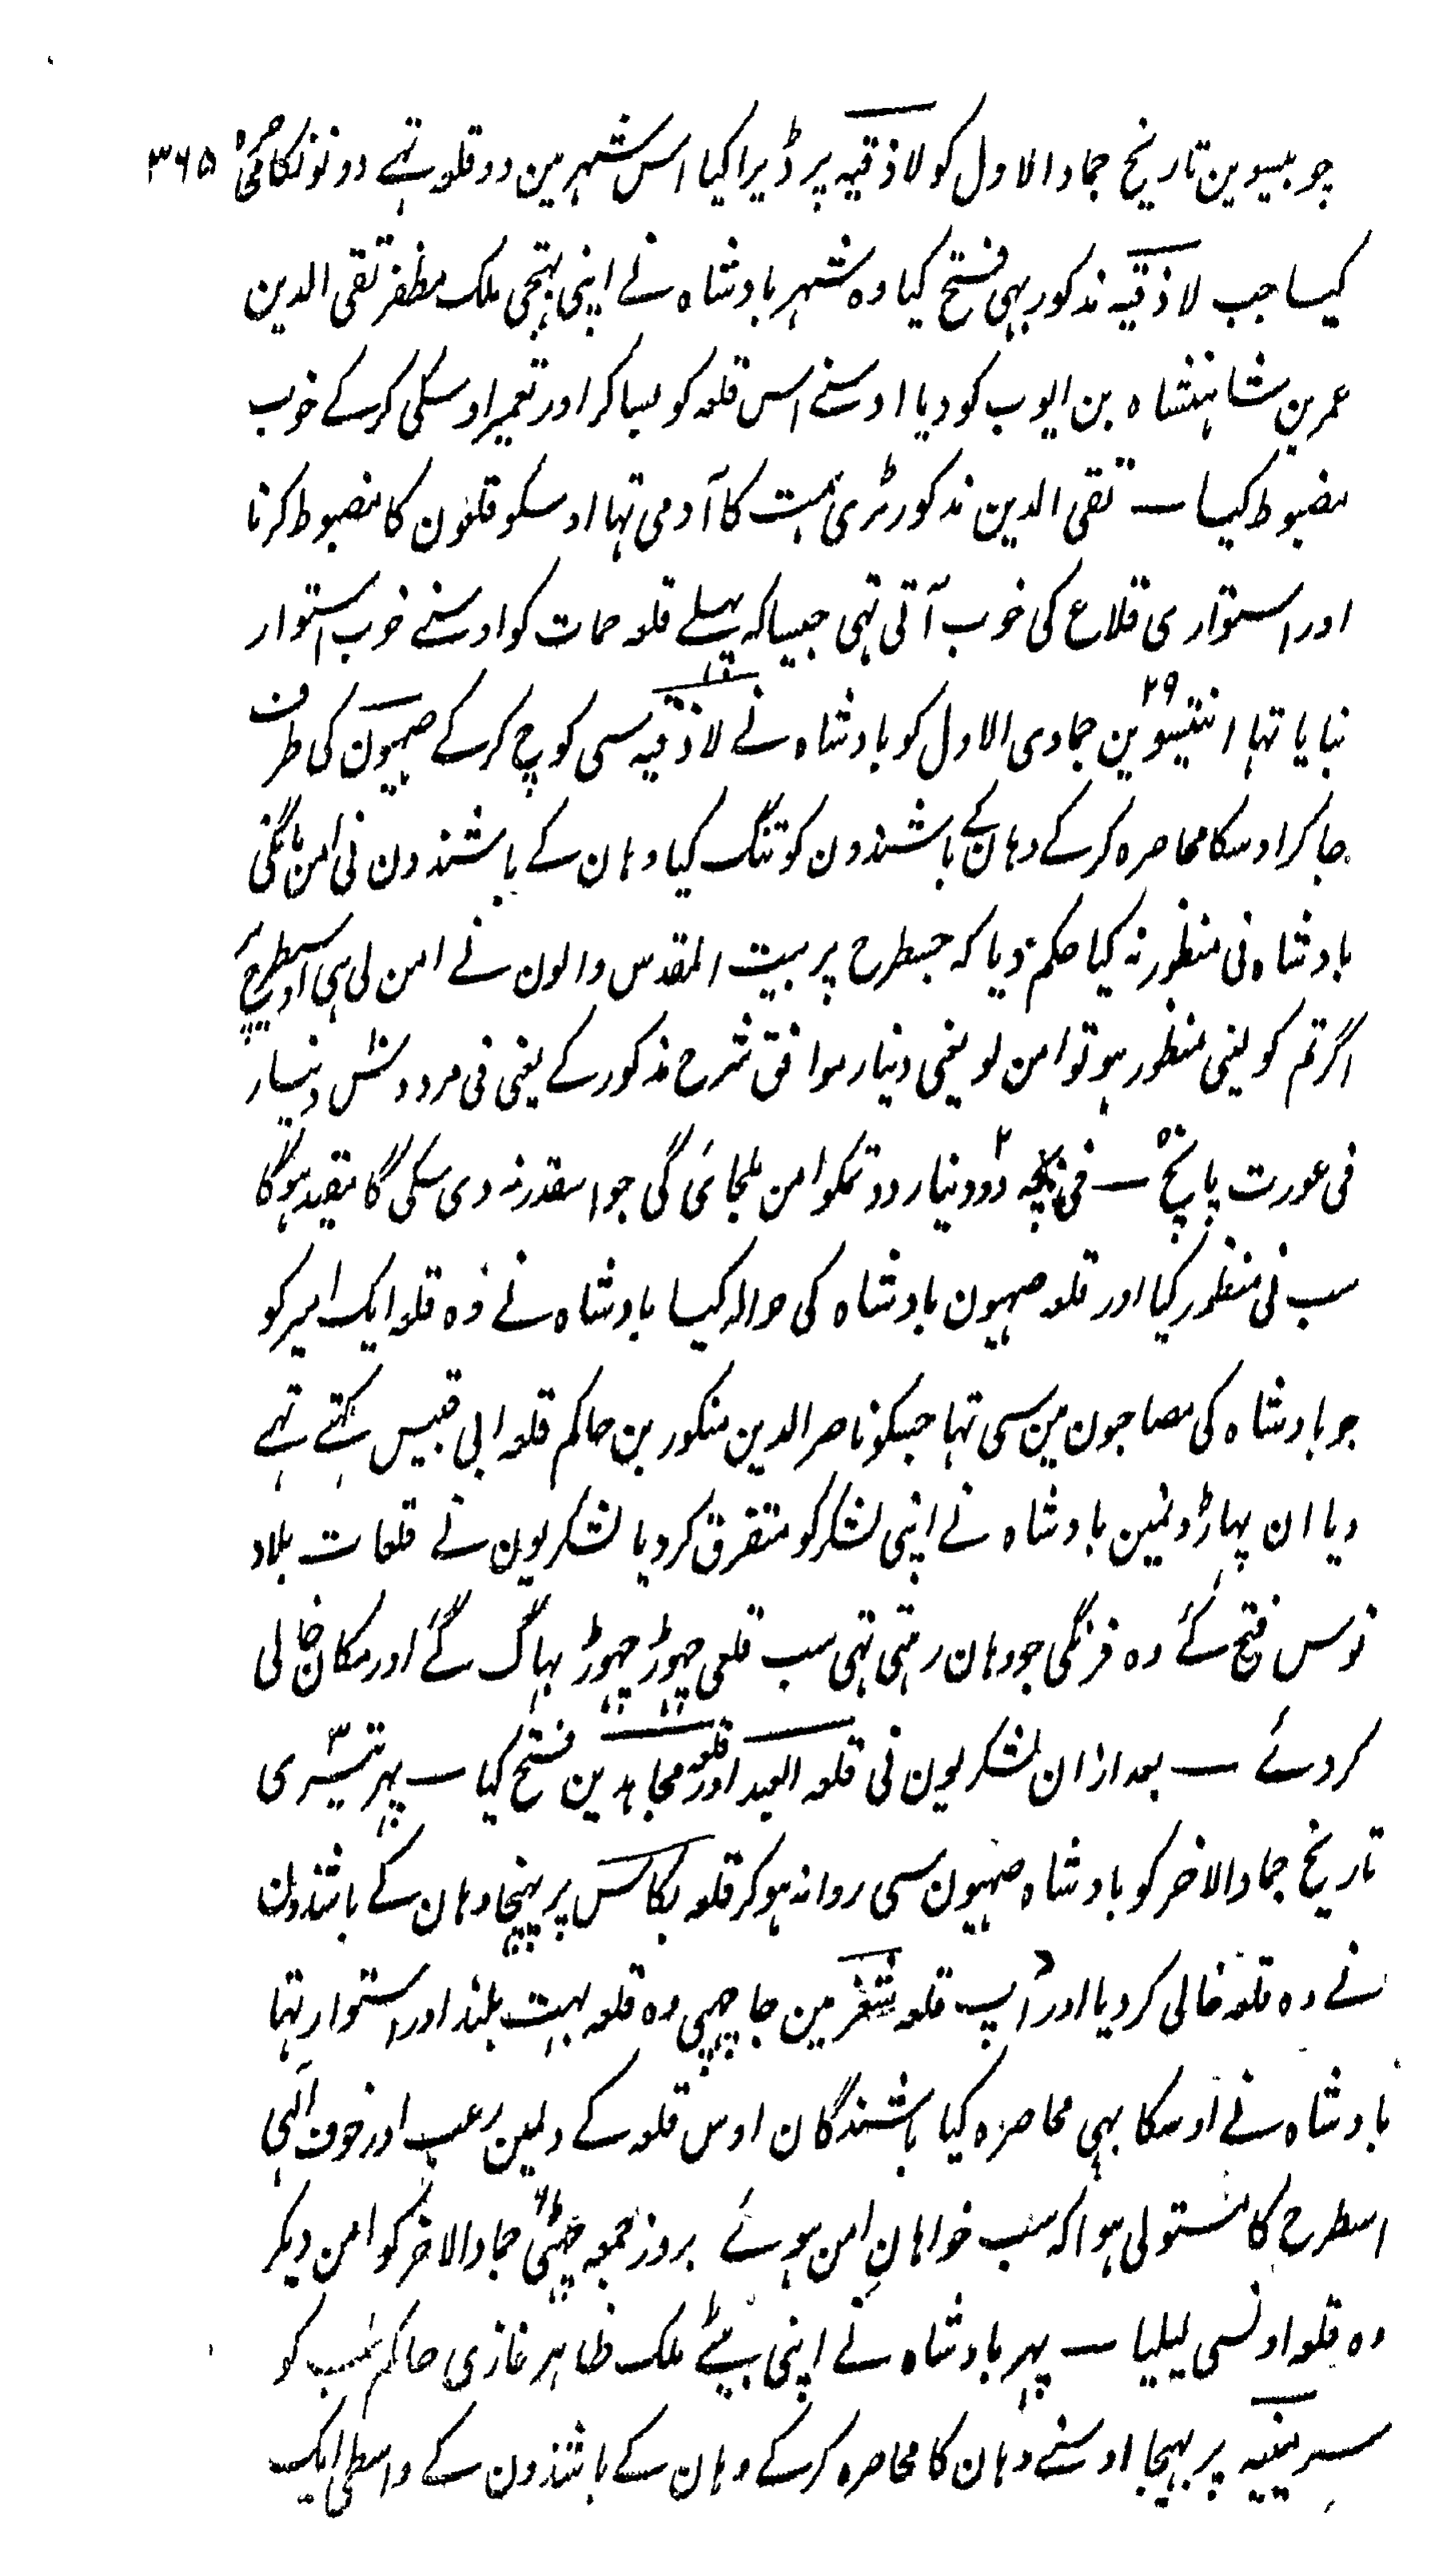 چوبیسوین تاریخ جمادالاول کو لاذقیہ پر ڈیرا کیا اس شہر مین دو قلعہ تہے دونونکا محاصرہ ۳۶۵
کیا جب لاذقیہ مذکور بہی فتح کیا وہ شہر بادشاہ نے اپنی بہتیجی ملک مظفر تقی الدین
عمر بن شاہنشاہ بن ایوب کو دیا اوسنے اس قلعہ کو بسا کر اور تعمیر اوسکی کرکے خوب
مضبوط کیا — تقی الدین مذکور بڑی ہمت کا آدمی تہا اوسکو قلعون کا مضبوط کرنا
اور استواری قلاع کی خوب آتی تہی جیسا کہ پہلے قلعہ حمات کو اوسنے خوب استوار
بنایا تہا انتیسوین ۲۹ جمادی الاول کو بادشاہ نے لاذقیہ سی کوچ کرکے صہیون کی طرف
جا کر اوسکا محاصرہ کرکے وہان کے باشندون کو تنگ کیا وہان کے باشندون نی امن مانگی
بادشاہ نی منظور نہ کیا حکم دیا کہ جسطرح پر بیت المقدس والون نے امن لی ہی اوسیطرح پر
اگر تم کو لینی منظور ہو تو امن لو یعنی دینار موافق شرح مذکور کے یعنی فی مرد دس دینار
فی عورت پانچ ۵ — فی بچہ دو ۲ دینار دو تمکو امن ملجائی گی جو اسقدر نہ دی سکی گا مقید ہوگا
سب نی منظور کیا اور قلعہ صہیون بادشاہ کی حوالہ کیا بادشاہ نے وہ قلعہ ایک امیر کو
جو بادشاہ کی مصاحبون مین سی تہا جسکو ناصر الدین منکور بن حاکم قلعہ ابی قبیس کہتے تہے
دیا ان پہاڑونمین بادشاہ نے اپنی لشکر کو متفرق کر دیا لشکریون نے قلعات بلاد
نوس فتح کئے وہ فرنگی جو وہان رہتی تہی سب قلعی چہوڑ چہوڑ بہاگ گئے اور مکان خالی
کردئے — بعد ازان لشکریون نی قلعہ العید اور قلعہ مجاہدین فتح کیا — پہر تیسری ۳
تاریخ جمادالاخر کو بادشاہ صہیون سی روانہ ہوکر قلعہ بکاس پر پہنچا وہان کے باشندون
نے وہ قلعہ خالی کر دیا اور آپ قلعہ شغر مین جا چہپی وہ قلعہ بہت بلند اور استوار تہا
بادشاہ نے اوسکا بہی محاصرہ کیا باشندگان اوس قلعہ کے دلمین رعب اور خوف الہی
اسطرح کا مستولی ہوا کہ سب خواہان امن ہوئے بروز جمعہ چہٹی ۶ جمادالاخر کو امن دیکر
وہ قلعہ اونسی لیلیا — پہر بادشاہ نے اپنی بیٹے ملک ظاہر غازی حاکم حلب کو
سرمینیہ پر بہیجا اوسنے وہان کا محاصرہ کرکے وہان کے باشندون کے واسطی ایک